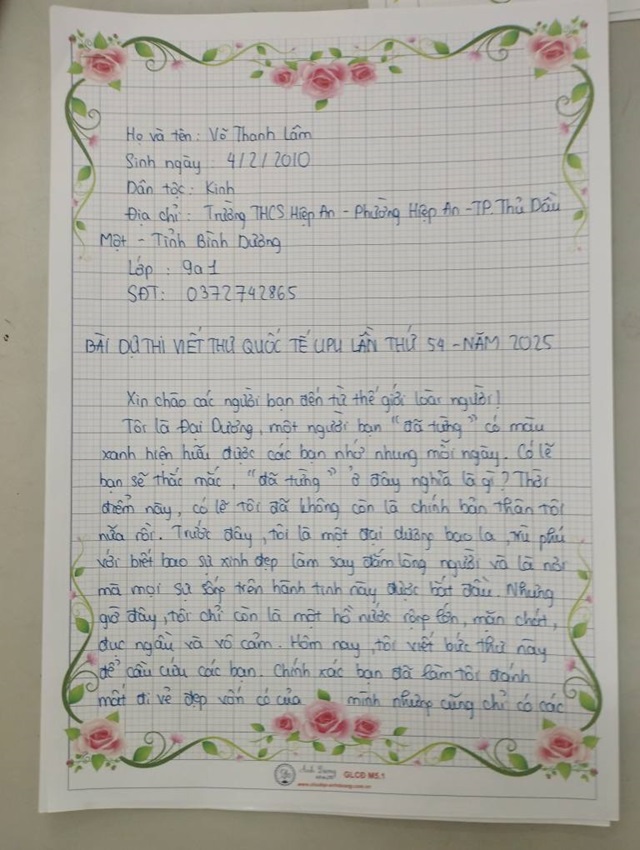 Họ và tên: Võ Thanh Lâm
Sinh ngày: 4/2/2010
Dân tộc: Kinh
Địa chỉ: Trường THCS Hiệp An - Phường Hiệp An - TP. Thủ Dầu
Một - Tỉnh Bình Dương
Lớp: 9a1
SĐT: 0372742865
BÀI DỰ THI VIẾT THƯ QUỐC TẾ UPU LẦN THỨ 54 - NĂM 2025
Xin chào các người bạn đến từ thế giới loài người!
Tôi là Đại Dương, một người bạn "đã từng" có màu
xanh hiện hữu được các bạn nhớ nhung mỗi ngày. Có lẽ
bạn sẽ thắc mắc, "đã từng" ở đây nghĩa là gì? Thời
điểm này, có lẽ tôi đã không còn là chính bản thân tôi
nữa rồi. Trước đây, tôi là một đại dương bao la, trù phú
với biết bao sự xinh đẹp làm say đắm lòng người và là nơi
mà mọi sự sống trên hành tinh này được bắt đầu. Nhưng
giờ đây, tôi chỉ còn là một hồ nước rộng lớn, mặn chát,
đục ngầu và vô cảm. Hôm nay, tôi viết bức thư này
để cầu cứu các bạn. Chính xác bạn đã làm tôi đánh
mất đi vẻ đẹp vốn có của mình nhưng cũng chỉ có các
Ánh Dương
GLCĐ M5.1